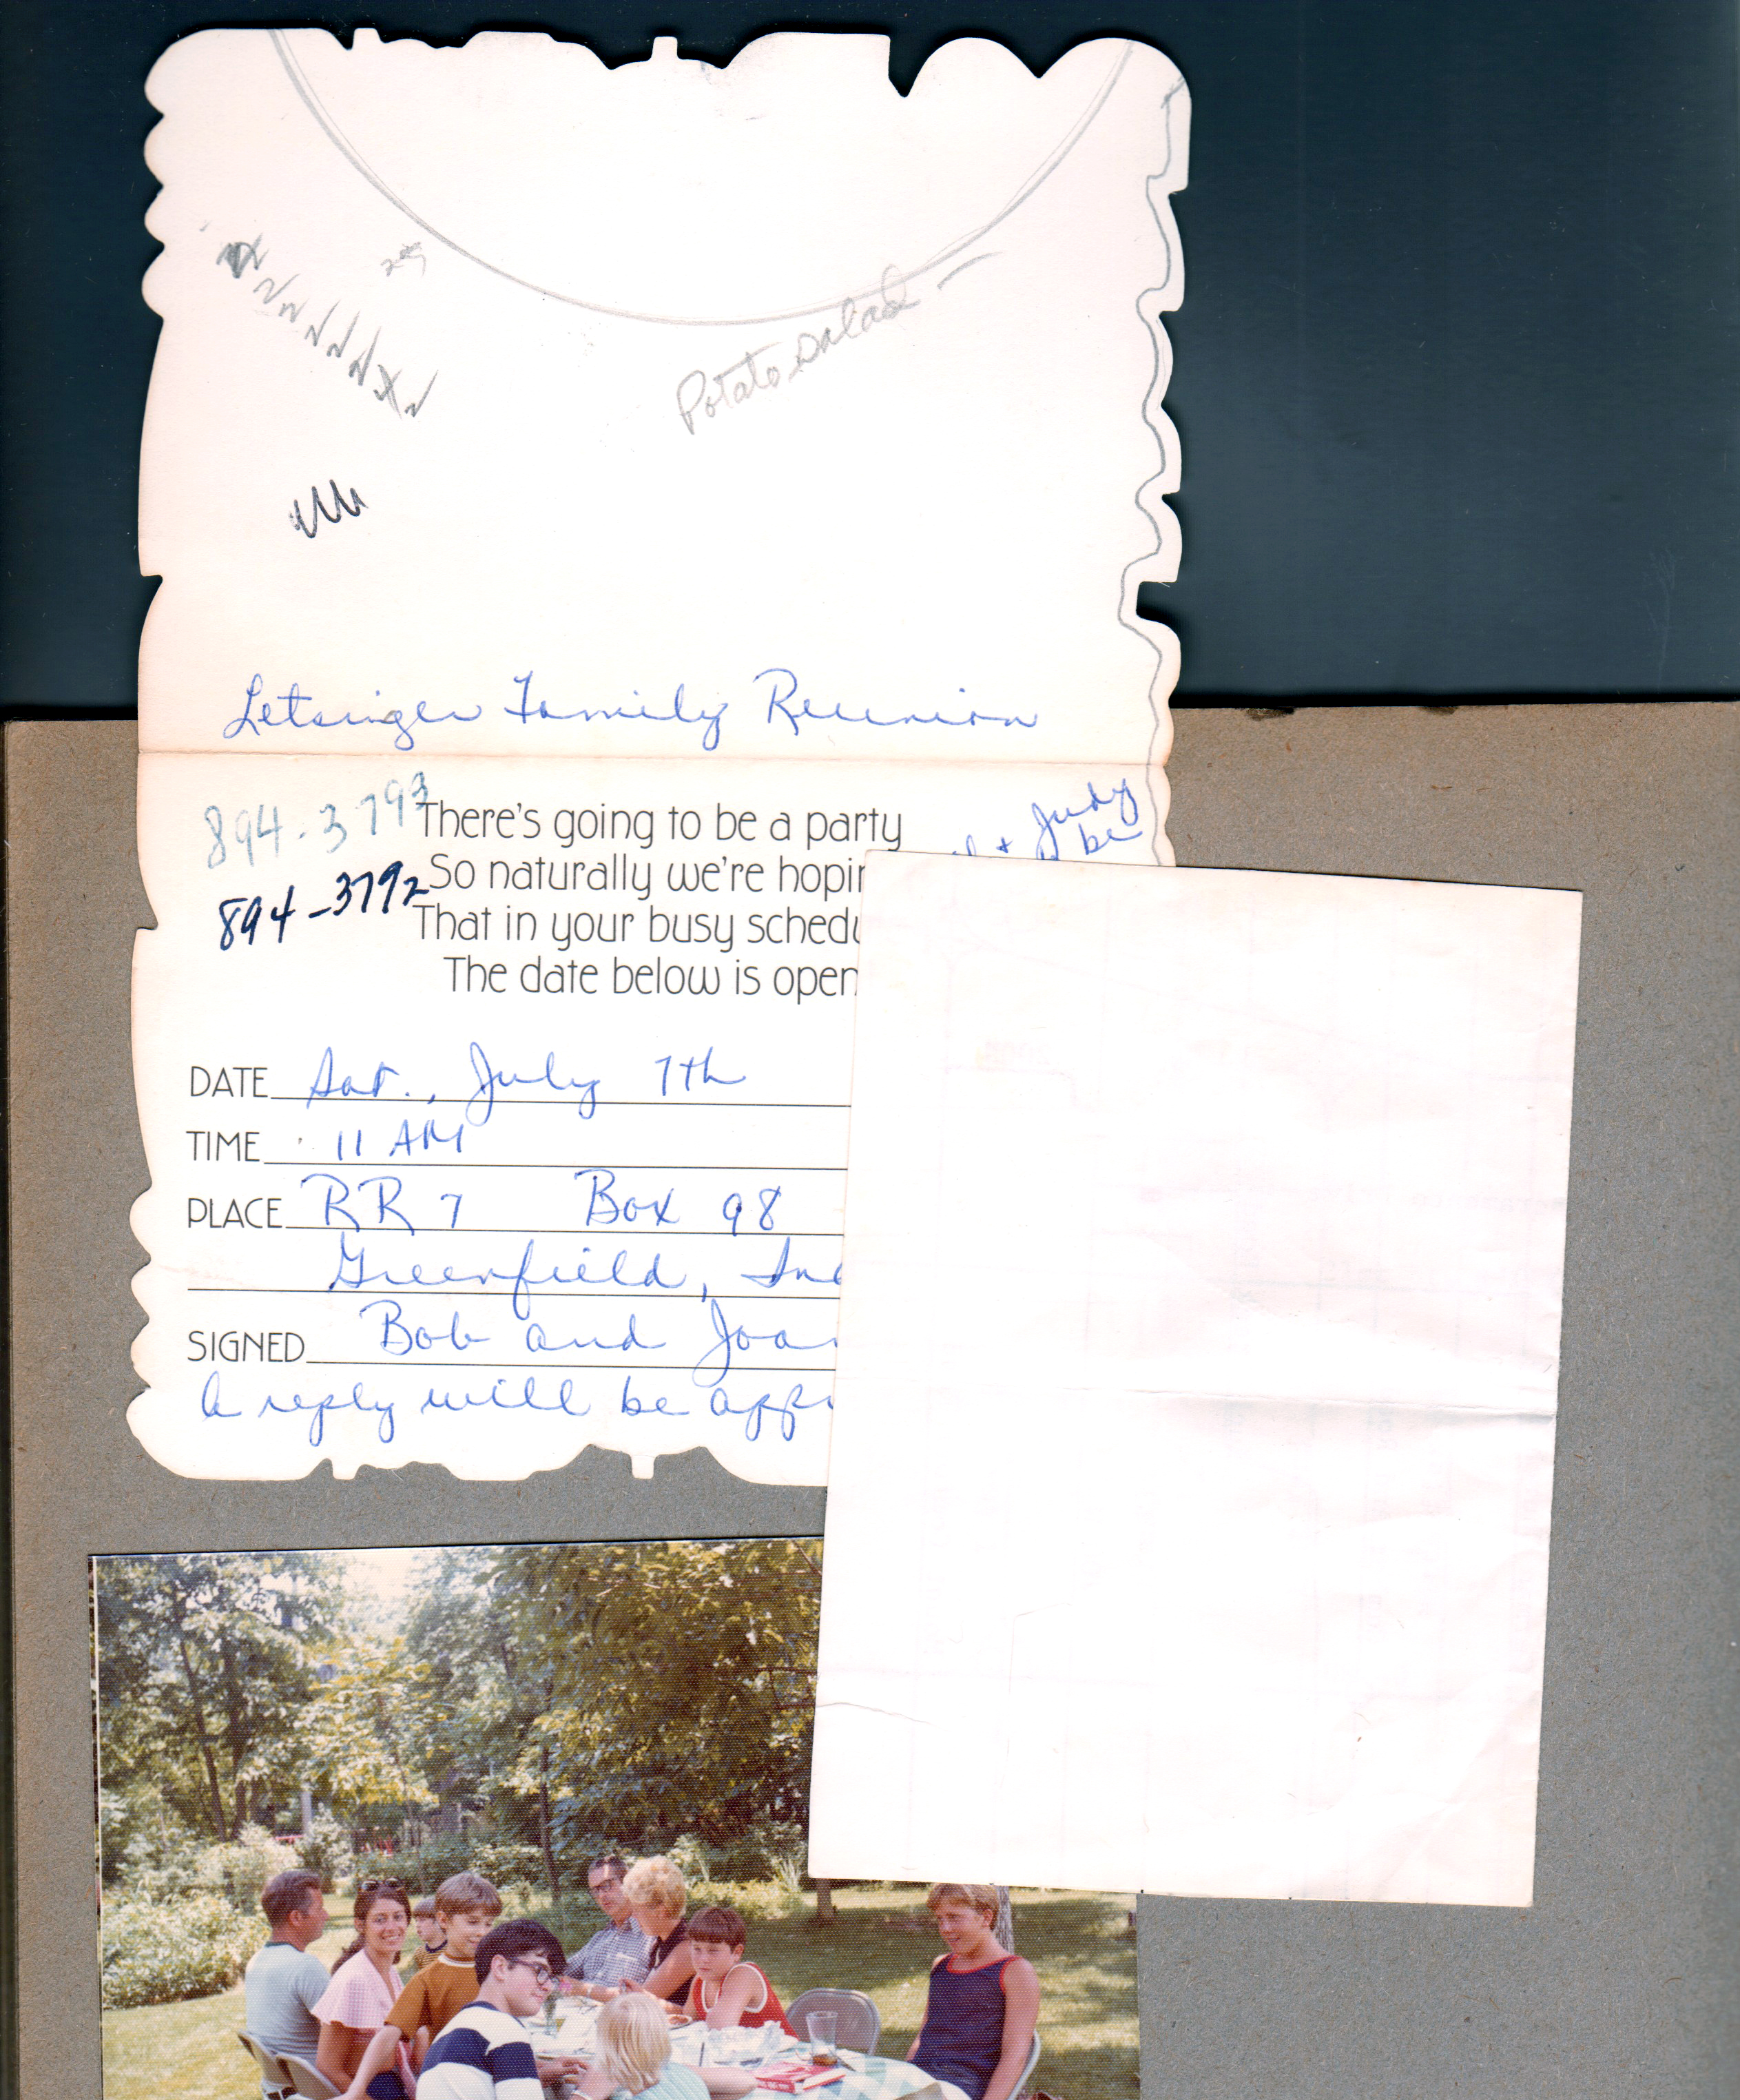 Potato salad -
Letsinger Family Reunion
894-3793
894-3792
Judy
+ be
There's going to be a party
So naturally we're hopin
That in your busy schedu
The date below is open
DATE Sat., July 7th
TIME 11 AM
PLACE RR 7 Box 98
Greenfield, Ind
SIGNED Bob and Joan
A reply will be appr